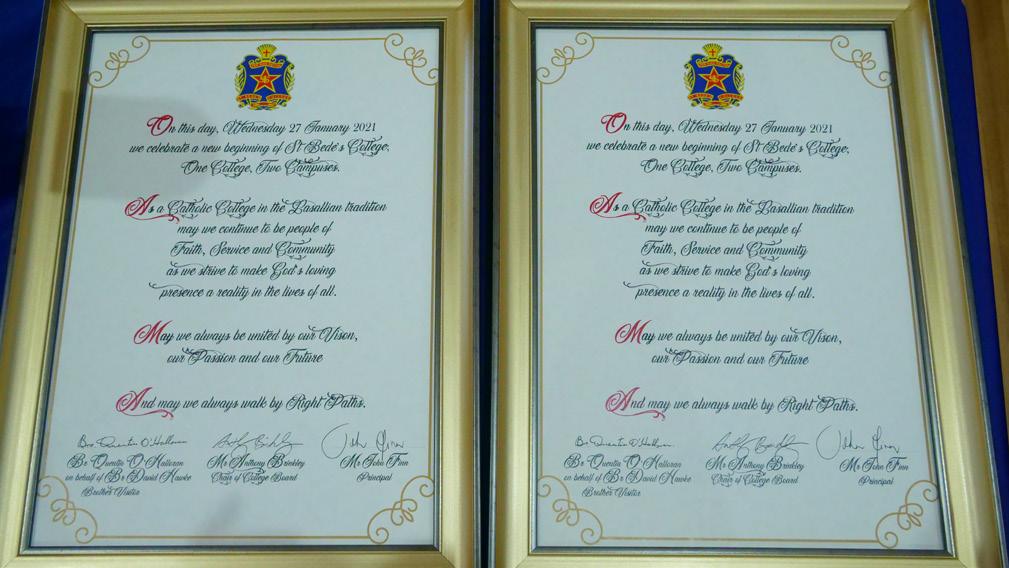 On this day, Wednesday 27 January 2021
we celebrate a new beginning of St Bede's College,
One College, Two Campuses.
As a Catholic College in the Lasallian tradition
may we continue to be people of
Faith, Service and Community
as we strive to make God's loving
presence a reality in the lives of all.
May we always be united by our Vison,
our Passion and our Future
And may we always walk by Right Paths.
Bro Quentin O'Halloran
Br Quentin O'Halloran
on behalf of Br David Hawke
Brother Visitor
Mr Anthony Brinkley
Chair of College Board
John Finn
Mr John Finn
Principal
On this day, Wednesday 27 January 2021
we celebrate a new beginning of St Bede's College,
One College, Two Campuses.
As a Catholic College in the Lasallian tradition
may we continue to be people of
Faith, Service and Community
as we strive to make God's loving
presence a reality in the lives of all.
May we always be united by our Vison,
our Passion and our Future
And may we always walk by Right Paths.
Bro Quentin O'Halloran
Br Quentin O'Halloran
on behalf of Br David Hawke
Brother Visitor
Mr Anthony Brinkley
Chair of College Board
John Finn
Mr John Finn
Principal